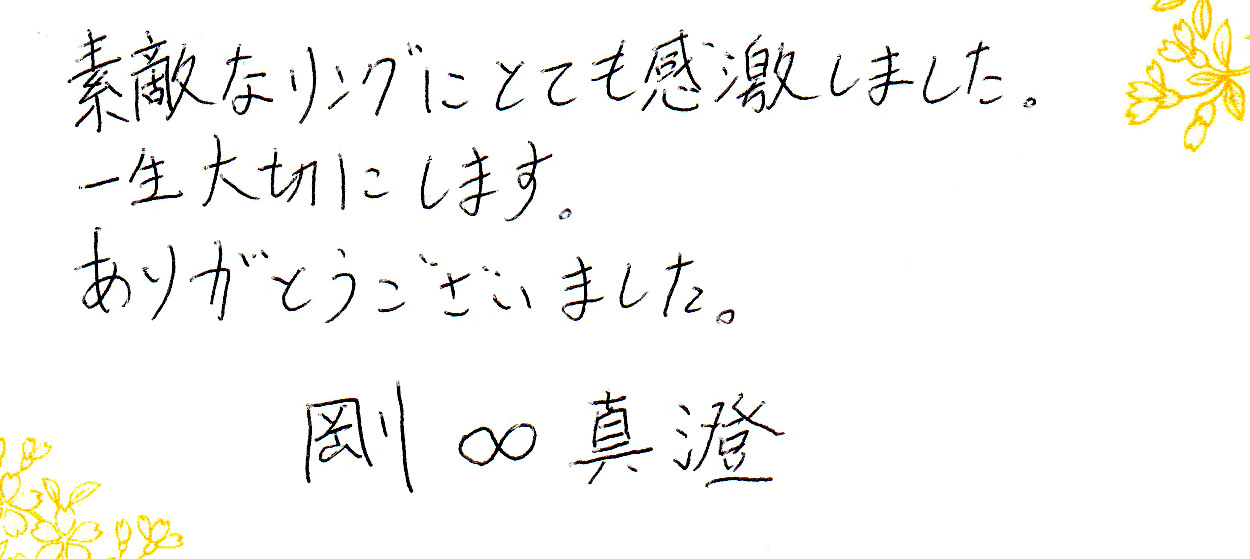 素敵なリングにとても感激しました。
一生大切にします。
ありがとうございました。
剛 ∞ 真澄